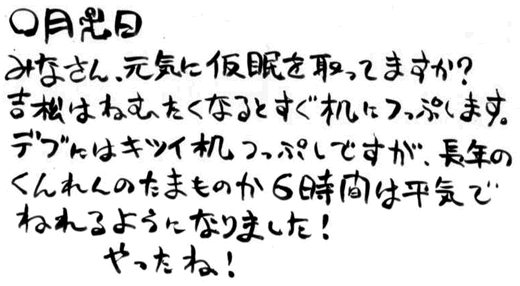 〇月〆日
みなさん、元気に仮眠を取ってますか?
吉松はねむたくなるとすぐ机につっぷします。
デブにはキツイ机つっぷしですが、長年の
くんれんのたまものか6時間は平気で
ねれるようになりました!
やったね!